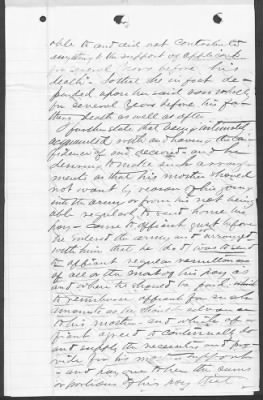 able to and did not contribute
anything to the support of applicant
for several years before his
death. So that she in fact de-
pended upon her said son wholly
for several years before his fa-
thers death as well as after
I further state that being intimately
acquainted with and having the con-
fidence of said deceased and he
desiring to make such arrange-
ments as that his mother should
not want by reason of his going
into the army or from his not being
able regularly to send home his
pay - came to affiant just before
he entered the army and arranged
with him that he do was to send
to affiant regular remittances
of all or the most of his pay as
and when he should be paid which
to reimburse affiant for such
amounts as he should advance
to his mother - and which af-
fiant agreed to continually do
and supply the necessaries and pro-
vide for his mother support
- and pay over to her the sums
or portions of his pay that